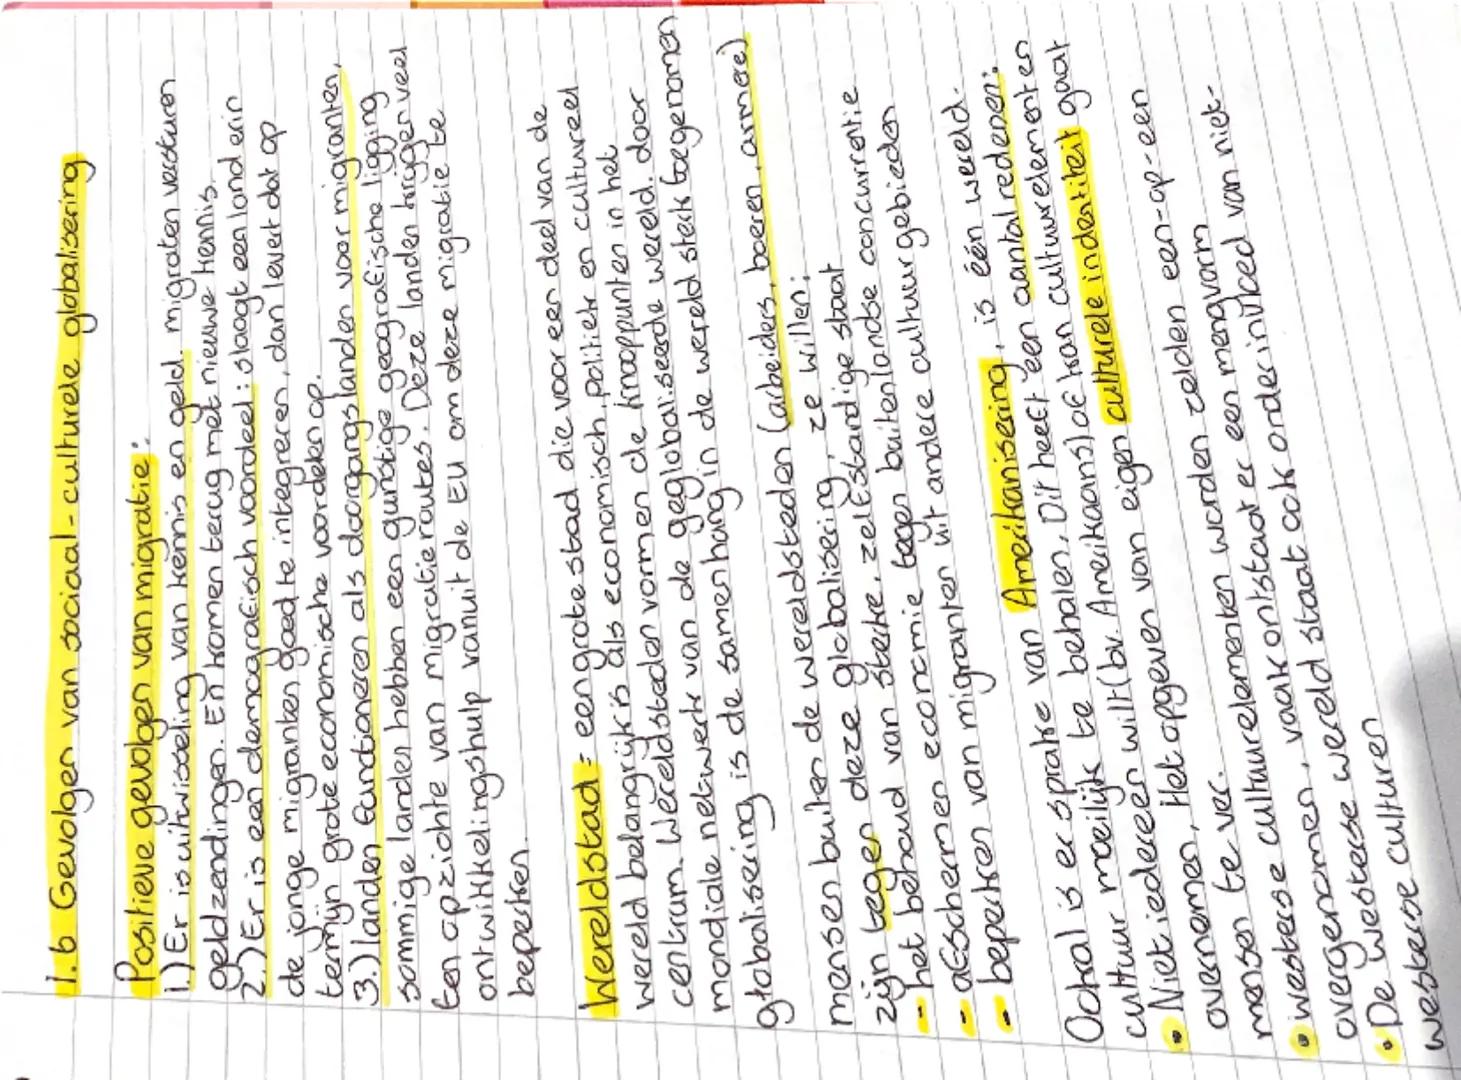 1.6 Gevolgen van sociaal-culturele globalisering
Positieve gevolgen van migratie:
1.) Er is uitwisseling van kennis en geld. migraten versturen
geldzendingen. En komen terug met nieuwe kennis.
2.) Er is een demografisch voordeel: slaagt een land erin
de jonge migranten goed te integreren, dan levert dat op
termijn grote economische voordelen op.
3.) landen functioneren als doorgangslanden voor migranten,
sommige landen hebben een gunstige geografische ligging
ten opzichte van migratieroutes. Deze landen krijgen veel
ontwikkelingshulp vanuit de EU om deze migratie te
beperken.
Wereldstad = een grote stad die voor een deel van de
wereld belangrijk is als economisch, politiek en cultureel
centrum. Wereldsteden vormen de knooppunten in het
mondiale netwerk van de geglobaliseerde wereld. door
globalisering is de samenhang in de wereld sterk toegenomen
mensen buiten de wereldsteden (arbeiders, boeren, armere)
zijn tegen deze globalisering, ze willen:
- het behoud van sterke, zelfstandige staat
- afschermen economie tegen buitenlandse concurrentie
- beperken van migranten uit andere cultuurgebieden
Ookal is er sprake van Amerikanisering, is één wereld-
cultuur moeilijk te behalen. Dit heeft een aantal redenen:
• Niet iedereen wilt (bv. Amerikaans) of kan cultuurelementen
overnemen, Het opgeven van eigen culturele indentiteit gaat
mensen te ver.
• westerse cultuurelementen worden zelden een-op-een
overgenomen, vaak ontstaat er een mengvorm
• De westerse wereld staat ook onder invloed van niet-
westerse culturen